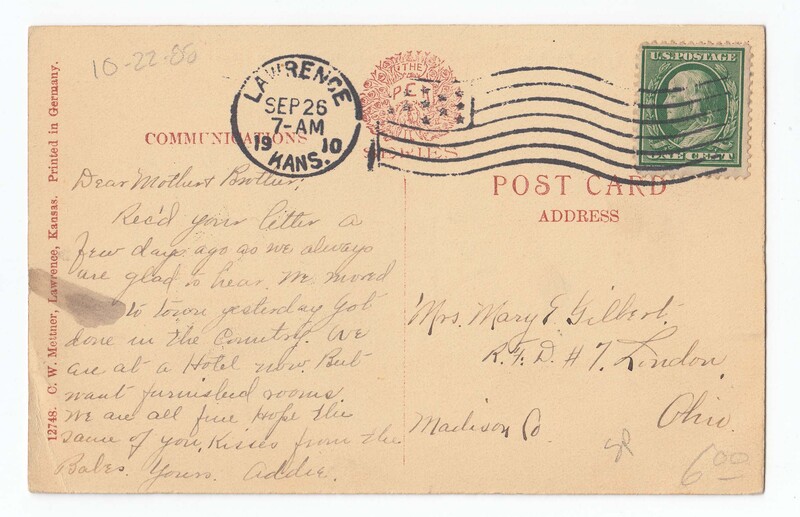 10-22-88
12748. C. W. Mettner, Lawrence, Kansas. Printed in Germany.
LAWRENCE
SEP 26
7-AM
1910
KANS.
THE
SERIES
U.S. POSTAGE
ONE CENT
COMMUNICATIONS
Dear Mother & Brother;
Rec'd your letter a
few days ago as we always
are glad to hear. We moved
to town yesterday got
done in the Country. We
are at a Hotel now. But
want furnished rooms.
We are all fine Hope the
same of you. Kisses from the
Babes. Yours. Addie.
POST CARD
ADDRESS
Mrs. Mary E Gilbert.
R.F.D. # 7. London,
Ohio.
Madison Co
6 00